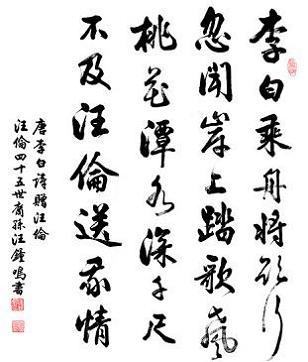 李白乘舟將欲行
忽聞岸上踏歌聲
桃花潭水深千尺
不及汪倫送我情
唐李白詩贈汪倫
汪倫四十五世裔孫汪鐘鳴書